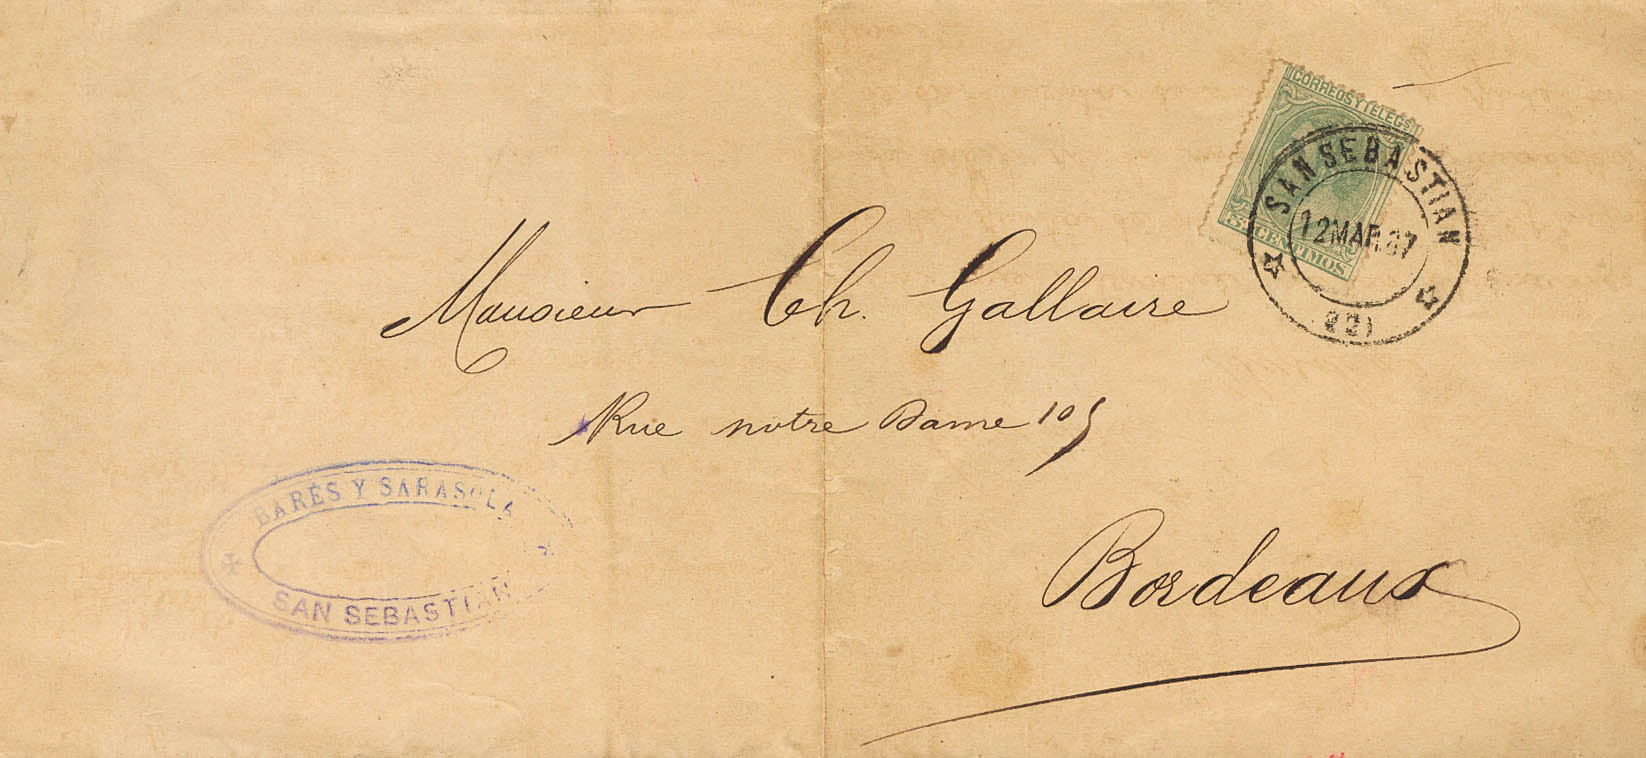 CORREOS Y TELEGS
5 CS CENTIMOS
SAN SEBASTIAN
12 MAR. 87
Monsieur Ch. Gallaire
Rue notre Dame 105
Bordeaux
BARÉS Y SARASOLA
SAN SEBASTIAN